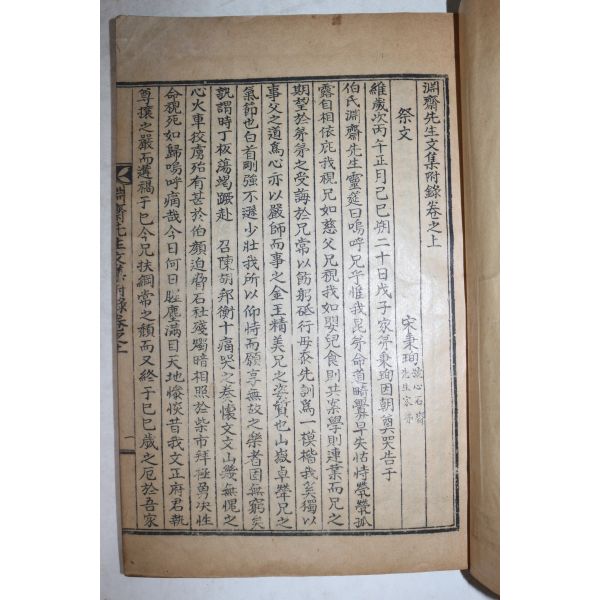 淵齋先生文集附錄卷之上
祭文
宋秉珣號心石齋先生家弟
維歲次丙午正月己巳朔二十日戊子家弟秉珣因朝奠哭告于
伯氏淵齋先生靈筵曰嗚呼兄乎惟我昆弟命道畸釁早失怙恃煢煢孤
露自相依庇我視兄如慈父兄視我如嬰兒食則共案學則連業而兄之
期望於弟弟之受誨於兄常以飭躬砥行毋忝先訓爲一模楷我奚獨以
事父之道爲心亦以嚴師而事之金王精美兄之姿質也山嶽卓犖兄之
氣節也白首剛強不遜少壯我所以仰恃而願享無故之樂者因無窮矣
孰謂時丁板蕩竭蹶赴 召陳胡邦衡十痛哭之奏懷文文山幾無愧之
心火車狡虜殆有甚於伯顏迫脅石社殘燭暗相照於柴市拜極勇决性
命視死如歸嗚呼痛哉今日何日腥塵滿目天地慘惔昔我文正府君執
尊攘之嚴而遘禍于巳今兄扶綱常之頹而又終于巳巳歲之厄於吾家
淵齋先生文集附錄卷之上 一